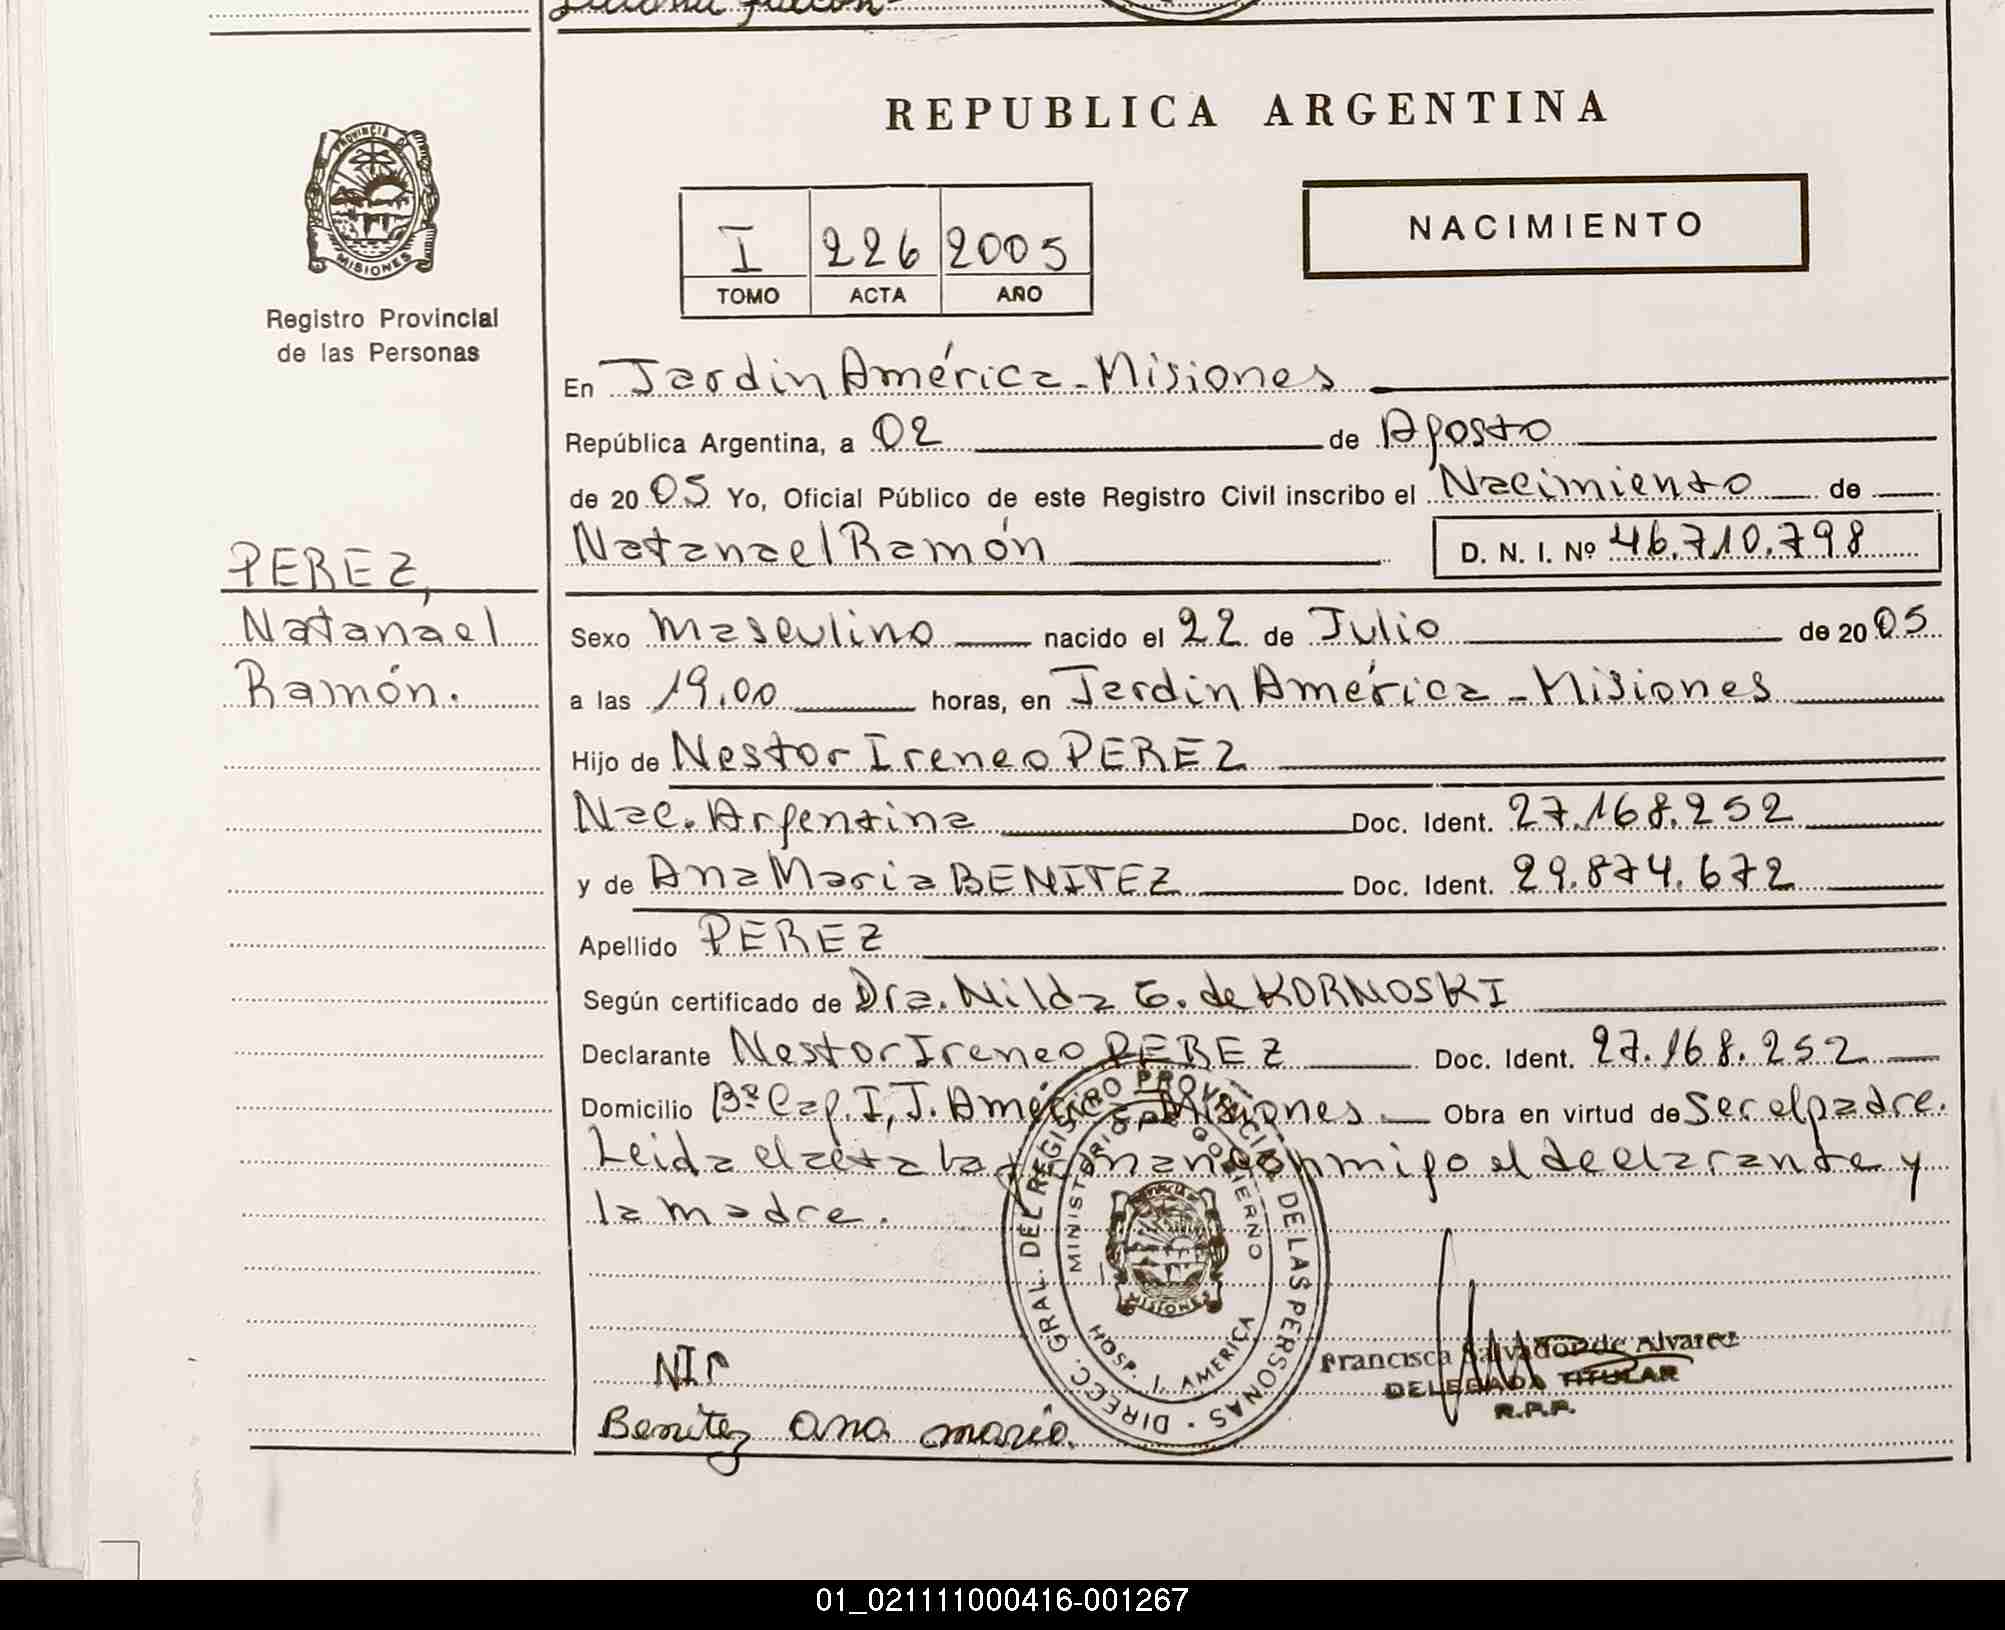 REPUBLICA ARGENTINA
PROVINCIA DE
MISIONES
Registro Provincial
de las Personas
NACIMIENTO
I 226 2005
TOMO ACTA AÑO
En Jardin América - Misiones
República Argentina, a 02 de Agosto
de 2005 Yo, Oficial Público de este Registro Civil inscribo el Nacimiento de
Natanael Ramón D. N. I. Nº 46.710.798
PEREZ,
Natanael
Ramón.
Sexo Masculino nacido el 22 de Julio de 2005
a las 19.00 horas, en Jardin América - Misiones
Hijo de Nestor Ireneo PEREZ
Nac. Argentina Doc. Ident. 27.168.252
y de Ana Maria BENITEZ Doc. Ident. 29.874.672
Apellido PEREZ
Según certificado de Dra. Nilda G. de KORNOSKI
Declarante Nestor Ireneo PEREZ Doc. Ident. 27.168.252
Domicilio Bº Cap. I, J. América - Misiones. Obra en virtud de Ser el padre.
Leida el acta la firman conmigo el declarante y
la madre.
DIRECC. GRAL. DEL REGISTRO PROVINCIAL DE LAS PERSONAS
MINISTERIO DE GOBIERNO
MISIONES
HOSP. J. AMERICA
NIP
Francisca Salvador de Alvarez
DELEGADA TITULAR
R.P.P.
Benitez ana maria.
01_021111000416-001267